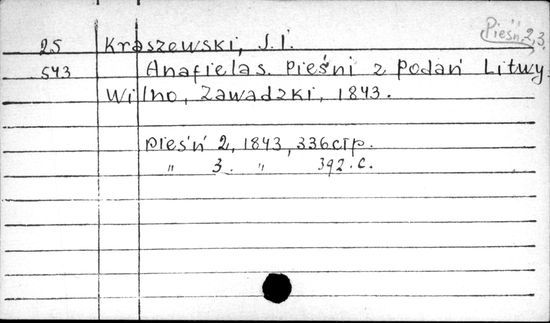 Pieśń 2, 3.
25 Kraszewski, J. I.
543 Anafielas. Pieśni z podań Litwy.
Wilno, Zawadzki, 1843.
pieśń 2, 1843, 336 стр.
" 3. " 392. с.